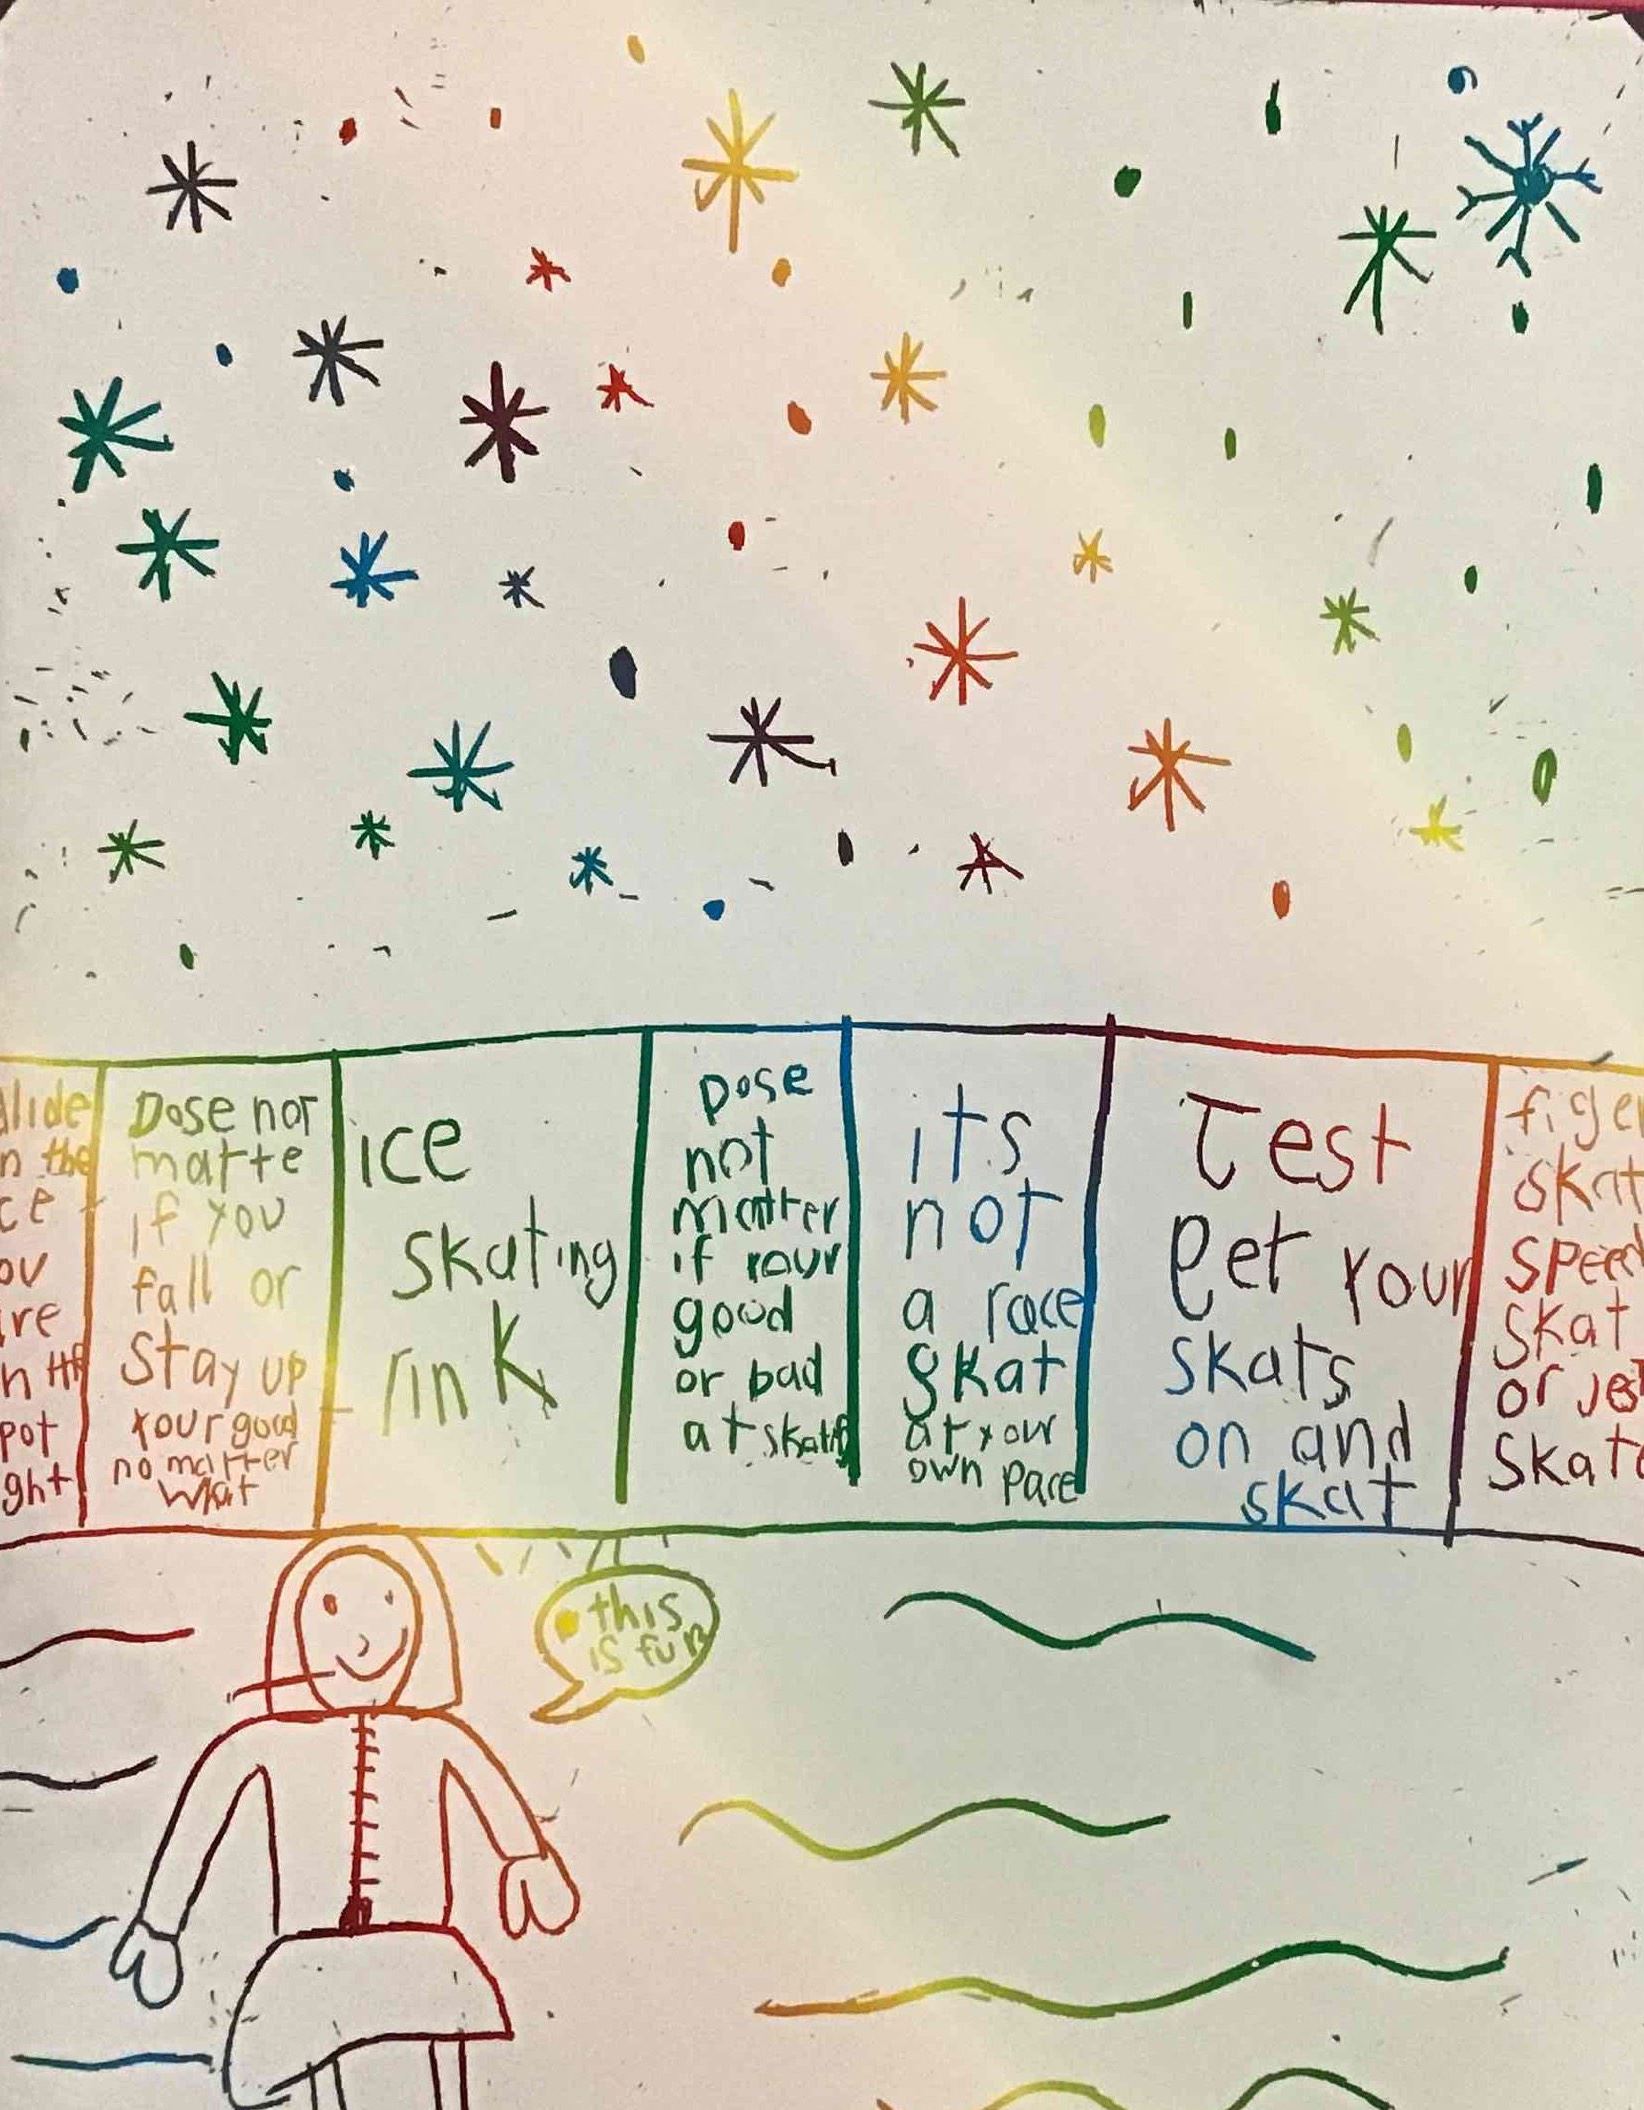 Dose not
matte
if you
fall or
stay up
your good
no matter
what
ice
skating
rink
Dose
not
matter
if your
good
or bad
at skating
its
not
a race
skat
at your
own pace
Test
pet your
skats
on and
skat
figer
skat
speed
skat
or jest
skate
this
is fun